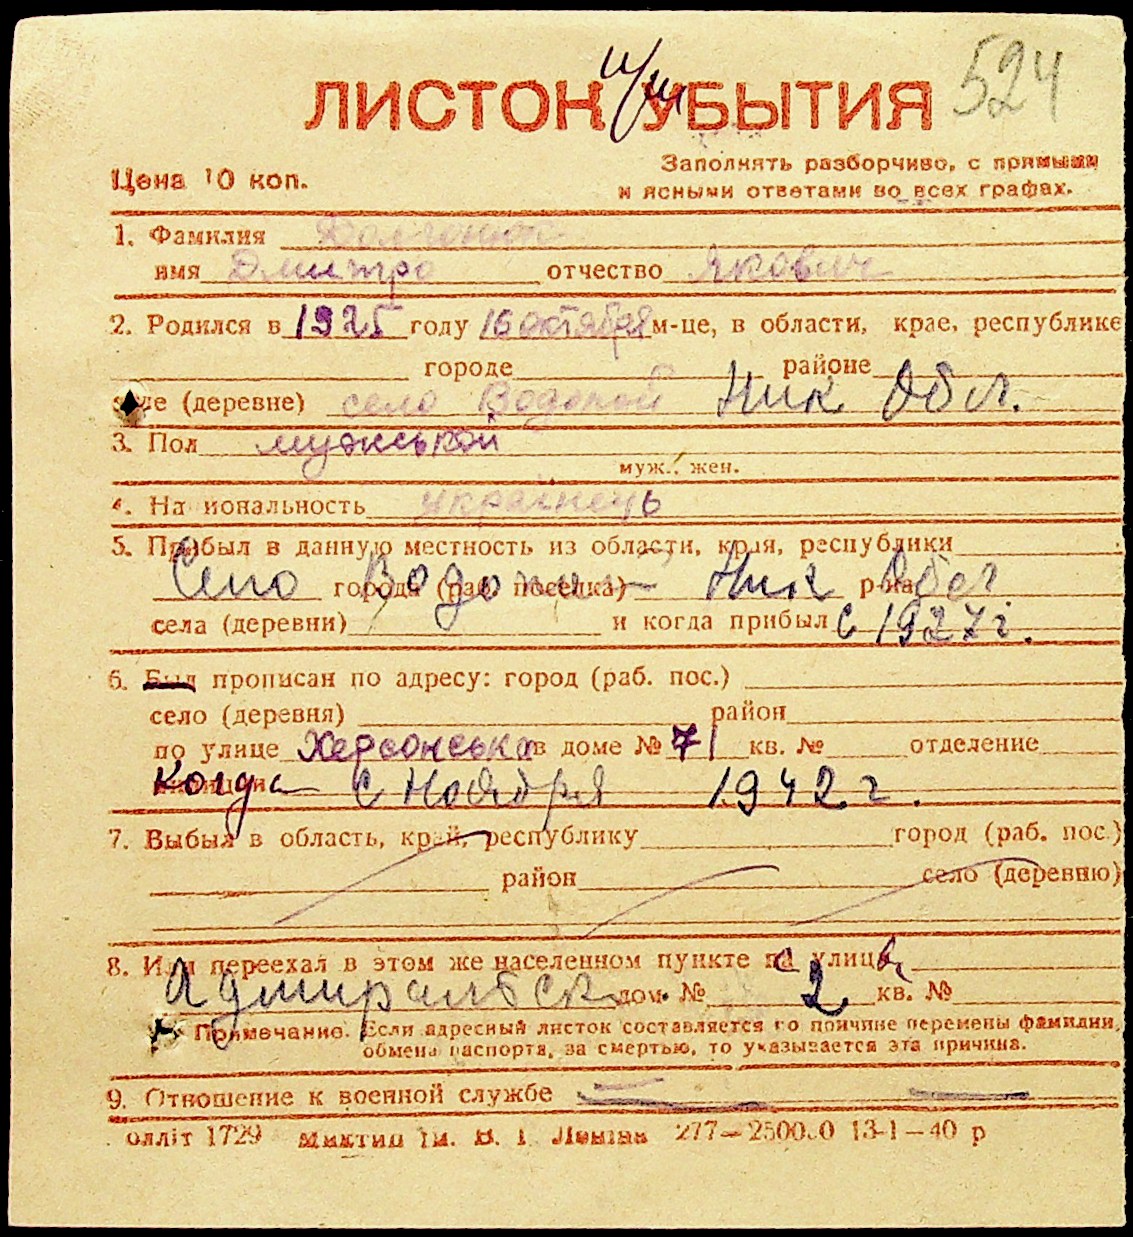 ЛИСТОК УБЫТИЯ 524
Цена 10 коп.
Заполнять разборчиво, с прямыми
и ясными ответами во всех графах.
1. Фамилия
имя Дмитро отчество Якович
2. Родился в 1925 году 16 октября м-це, в области, крае, республике
городе районе
селе (деревне) село Водопой Ник Обл.
3. Пол мужськой
муж., жен.
4. Национальность украінець
5. Прибыл в данную местность из области, края, республики
Село города (раб. поселка) Ник р-на Обл
села (деревни) и когда прибыл с 1927 г.
6. Был прописан по адресу: город (раб. пос.)
село (деревня) район
по улице Херсонська в доме № 71 кв. № отделение
милиции Когда с Ноября 1942 г.
7. Выбыл в область, край, республику город (раб. пос.)
район село (деревню)
8. Или переехал в этом же населенном пункте на улицу
Адмиральск дом № 2 кв. №
Примечание. Если адресный листок составляется по причине перемены фамилии,
обмена паспорта, за смертью, то указывается эта причина.
9. Отношение к военной службе
оллiт 1729 Миктип iм. В. I. Ленiна 277—250000 13-1—40 р